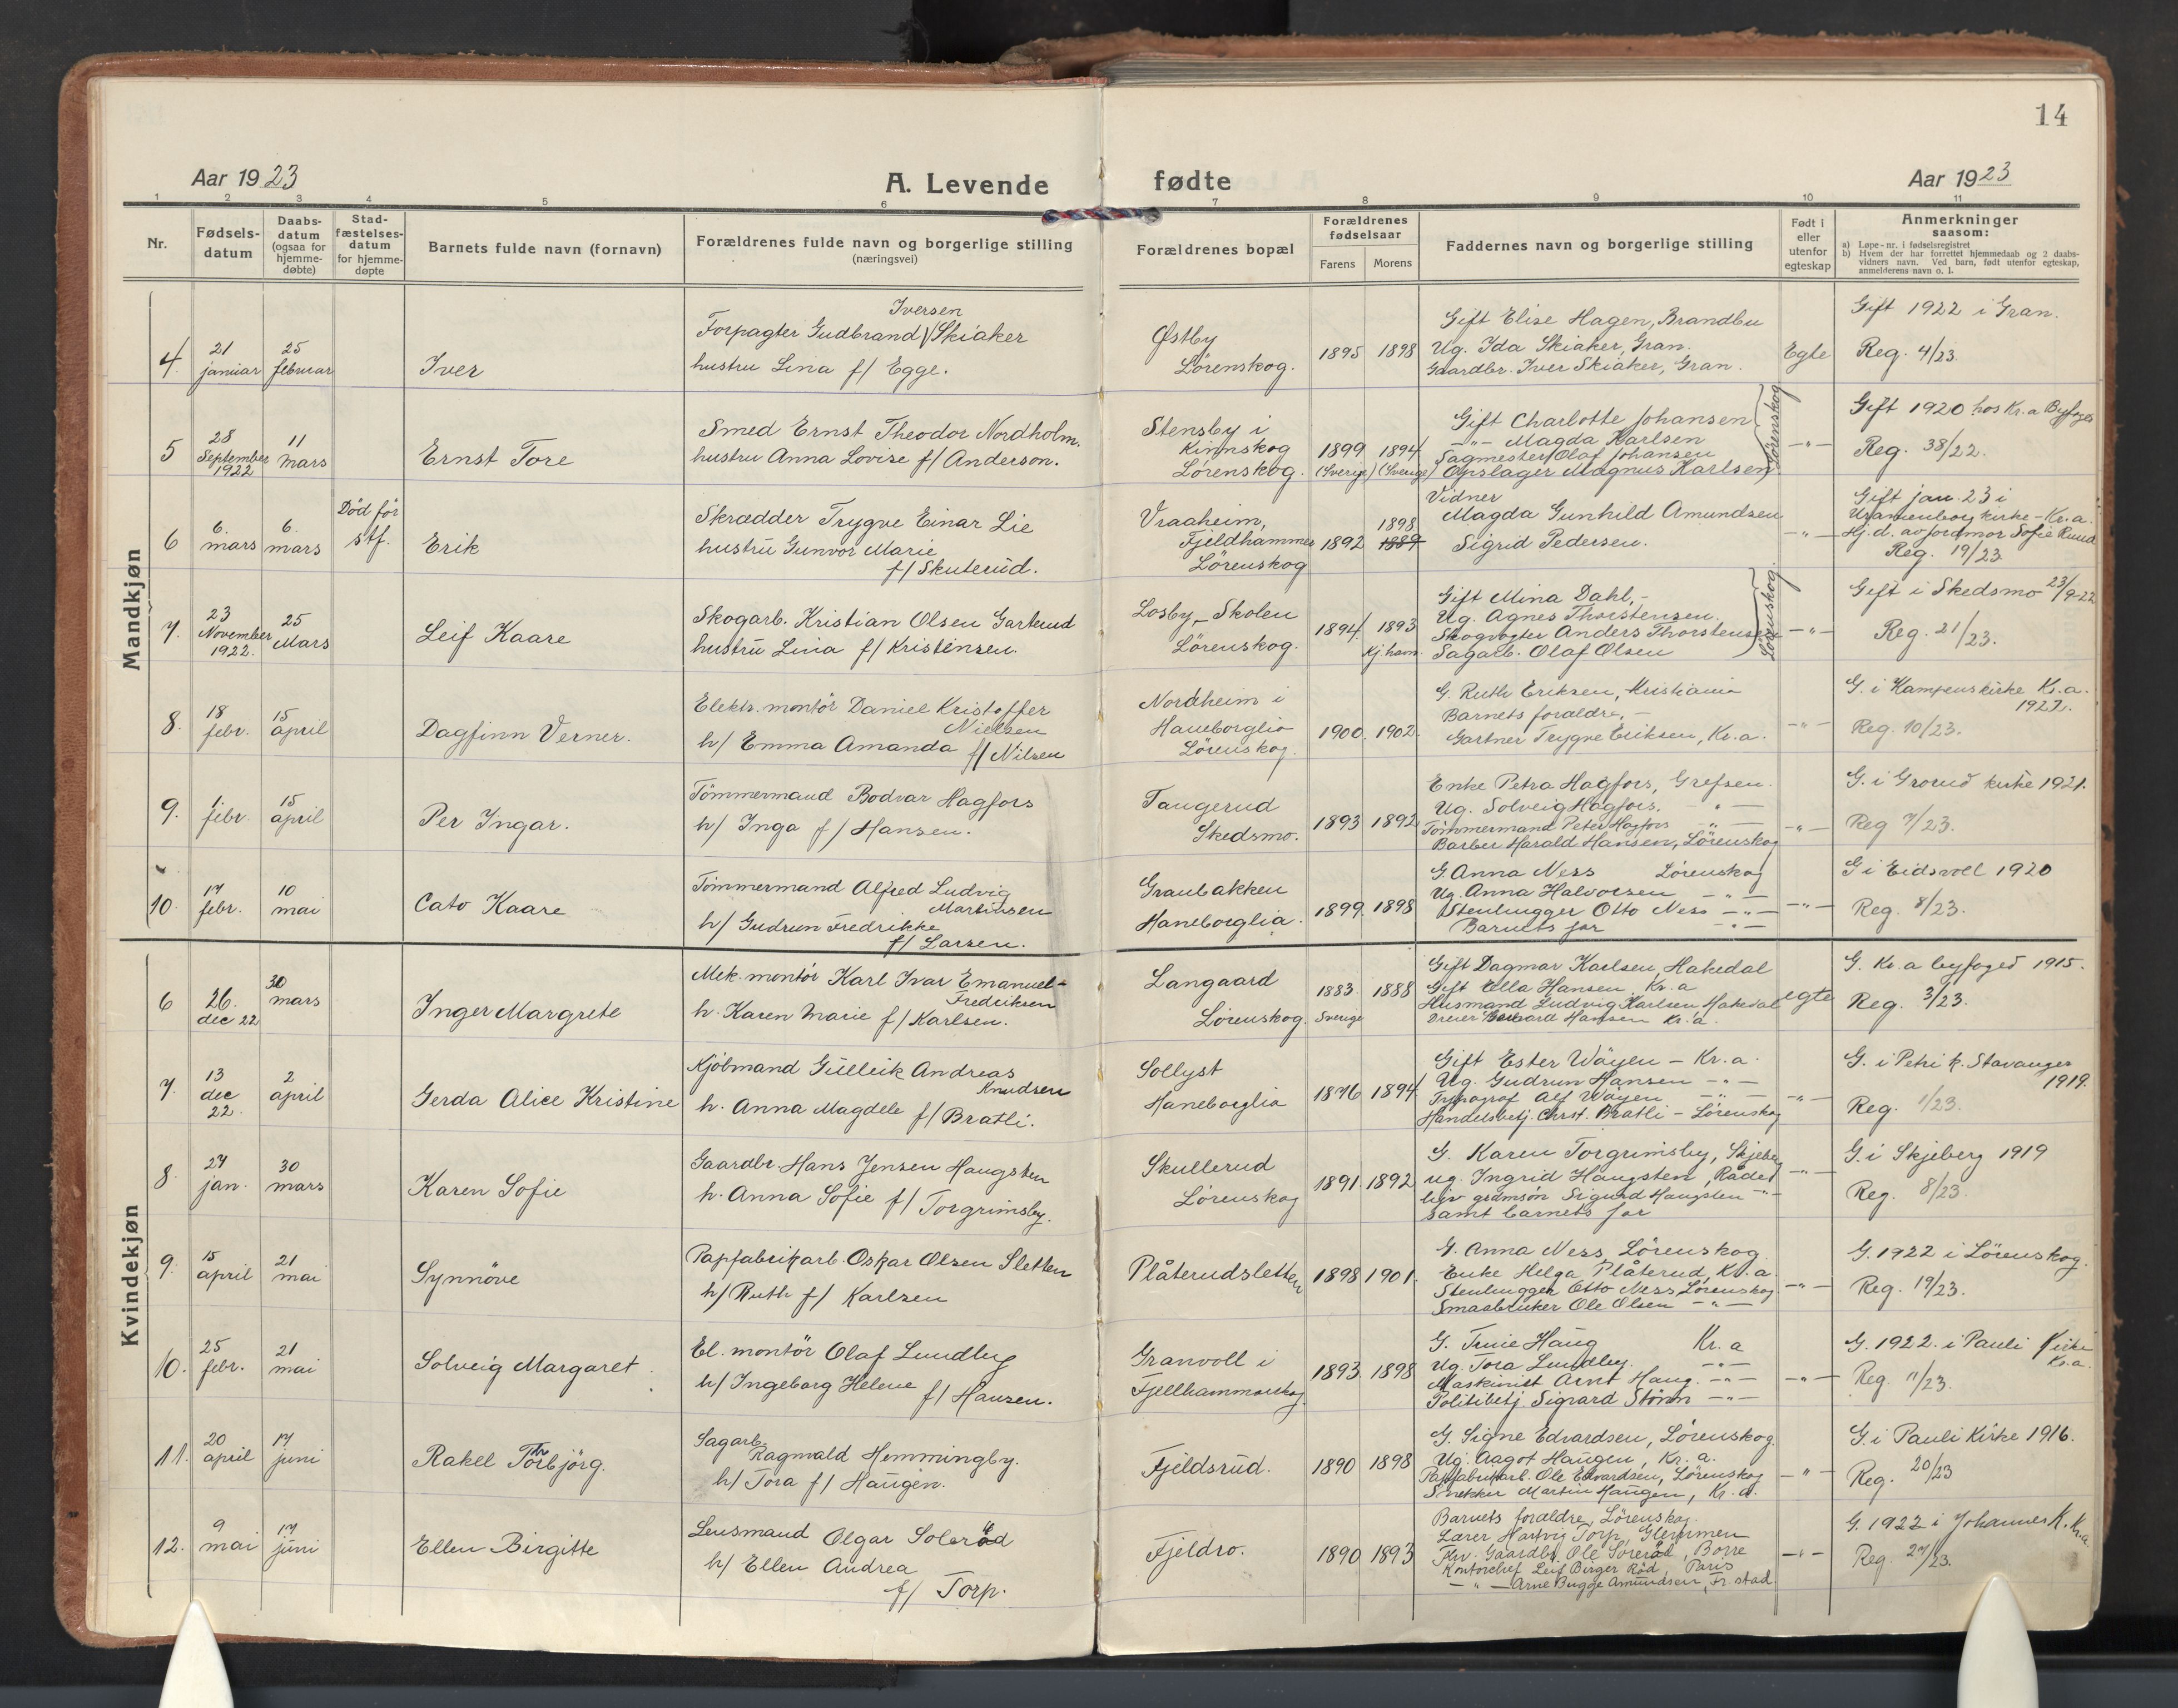 14
Aar 1923
A. Levende
fødte
Aar 1923
1 2 3 4 5 6 7 8 9 10 11
Nr.
Fødsels-
datum
Daabs-
datum
(ogsaa for
hjemme-
døbte)
Stad-
fæstelses-
datum
for hjemme-
døpte
Barnets fulde navn (fornavn)
Forældrenes fulde navn og borgerlige stilling
(næringsvei)
Forældrenes bopæl
Forældrenes
fødselsaar
Farens
Morens
Faddernes navn og borgerlige stilling
Født i
eller
utenfor
egteskap
Anmerkninger
saasom:
a) Løpe-nr. i fødselsregistret
b) Hvem der har forrettet hjemmedaab og 2 daabs-
vidners navn. Ved barn, født utenfor egteskap,
anmelderens navn o. l.
Mandkjøn
4.
21
januar
25
februar
Iver
Iversen
Forpagter Gudbrand Skiaker
hustru Lina f/ Egge.
Østby
Lörenskog.
1895
1898
Gift Elise Hagen, Brandbu
Ug. Ida Skiaker, Gran.
Gaardbr. Iver Skiaker, Gran.
Egte
Gift 1922 i Gran.
Reg. 4/23.
5
28
September
1922
11
mars
Ernst Tore
Smed Ernst Theodor Nordholm.
hustru Anna Lovise f/ Anderson.
Stensby i
Kinnskog
Lörenskog.
1899
(Sverige)
1894
(Sverige)
Gift Charlotte Johansen
-"- Magda Karlsen
Sagmester Olaf Johansen
Opslager Magnus Karlsen
Lörenskog
-"-
Gift 1920 hos Kr.a Byfoged
Reg. 38/22.
6
6.
mars
6.
mars
Död för
stf.
Erik
Skrædder Trygve Einar Lie
hustru Gunvor Marie
f/ Skuterud.
Vraaheim,
Fjeldhammer
Lörenskog
1892
1898
1889
Vidner
Magda Gunhild Amundsen
Sigrid Pedersen.
-"-
Gift jan. 23 i
Uranienborg kirke - Kr.a.
Hj.d. av jordmor Sofie Ruud
Reg. 19/23
7.
23
November
1922.
25
Mars
Leif Kaare
Skogarb. Kristian Olsen Garterud
hustru Lina f/ Kristensen.
Losby-Skolen
Lörenskog.
1894
1893
Kj.havn.
Gift Mina Dahl, -
Ug. Agnes Thorstensen.
Skogvogter Anders Thorstensen
Sagarb. Olaf Olsen
Lörenskog.
-"-
Gift i Skedsmo 23/9-22
Reg. 21/23.
8.
18
febr.
15
april
Dagfinn Verner.
Elektr. montör Daniel Kristoffer
Nielsen
h/ Emma Amanda f/ Nilsen
Nordheim i
Haneborglia
Lörenskog.
1900.
1902.
G. Ruth Eriksen, Kristiania
Barnets forældre, -
Gartner Trygve Eriksen, Kr.a.
-"-
G. i Kampens kirke Kr.a.
1922.
Reg. 10/23.
9.
1.
febr.
15
april
Per Ingar.
Tömmermand Bodvar Hagfors
h/ Inga f/ Hansen.
Tangerud
Skedsmo.
1893
1892
Enke Petra Hagfors, Grefsen.
Ug. Solveig Hagfors. -"-
Tömmermand Peter Hagfors -"-
Barber Harald Hansen, Lörenskog
-"-
G. i Grorud kirke 1921.
Reg 7/23.
10.
17
febr.
10
mai
Cato Kaare
Tömmermand Alfred Ludvig
Martinsen
h/ Gudrun Fredrikke
f/ Larsen.
Granbakken
Haneborglia.
1899.
1898
G. Anna Ness Lörenskog
Ug. Anna Halvorsen -"-
Stenhugger Otto Ness -"-
Barnets far -"-
-"-
G i Eidsvoll 1920
Reg. 8/23.
Kvindekjøn
6
26.
dec 22
30
mars
Inger Margrete
Mek. montör Karl Ivar Emanuel-
Fredriksen
h. Karen Marie f/ Karlsen.
Langaard
Lörenskog.
1883.
Sverige
1888
Gift Dagmar Karlsen, Hakedal
Gift Ella Hansen, Kr.a
Husmand Ludvig Karlsen Hakedal
Dreier Hansen Kr.a.
egte
G. Kr.a byfoged 1915.
Reg. 3/23.
7.
13
dec
22.
2
april
Gerda Alice Kristine
Kjöbmand Gulleik Andreas
Knudsen
h. Anna Magdele f/ Bratli.
Sollyst
Haneborglia
1876
1894
Gift Ester Wöyen - Kr.a.
Ug. Gudrun Hansen -"-
Typograf Alf Wöyen -"-
Handelsbetj. Chrst. Bratli - Lörenskog
-"-
G. i Petri k. Stavanger
1919.
Reg. 1/23.
8.
27
jan.
30
mars
Karen Sofie
Gaardbr. Hans Jensen Haugsten
h. Anna Sofie f/ Torgrimsby.
Skullerud
Lörenskog
1891.
1892
G. Karen Torgrimsby, Skjeberg
ug. Ingrid Haugsten, Råde
Sigurd Haugsten -"-
samt barnets far
-"-
G. i Skjeberg 1919
Reg. 8/23.
9.
15
april
21
mai
Synnöve
Papfabrikarb. Oskar Olsen Sletten
h/ Ruth f/ Karlsen
Plåterudsletten
1898
1901.
G. Anna Ness, Lörenskog
Enke Helga Plåterud, Kr.a.
Stenhugger Otto Ness Lörenskog
Smaabruker Ole Olsen -"-
-"-
G. 1922 i Lörenskog.
Reg. 19/23.
10.
25
febr.
21
mai
Solveig Margaret
El. montör Olaf Lundby
h/ Ingeborg Helene
f/ Hansen.
Granvoll i
Fjellhammerskog
1893.
1898
G. Haug Kr.a
Ug. Tora Lundby. -"-
Maskinist Arnt Haug. -"-
Politibetj Sigvard Störm -"-
-"-
G. 1922. i Pauli Kirke
Kr.a.
Reg. 11/23.
11.
20
april
17
juni
Rakel Thorbjörg.
Sagarb.
Ragnvald Hemmingby.
h/ Tora f/ Haugen.
Fjeldsrud.
1890
1898
G. Signe Edvardsen, Lörenskog.
Ug. Aagot Haugen, Kr.a.
Papfabrikarb. Ole Edvardsen, Lörenskog
Snekker Martin Haugen, Kr.a.
-"-
G. i Pauli Kirke 1916.
Reg. 20/23
12.
9
mai
17
juni
Ellen Birgitte
Lensmand Olgar Soleröd
h/ Ellen Andrea
f/ Torp.
Fjeldro.
1890
1893
Barnets forældre, Lörenskog.
Lærer Hartvig Torp, Glemmen
Fhv. Gaardbr. Ole Soleröd, Borre
Kontorchef Leif Birger Röd, Paris
-"- Arne Bugge Amundsen, Fr.stad.
-"-
G. 1922 i Johannes K. Kr.a.
Reg. 27/23.